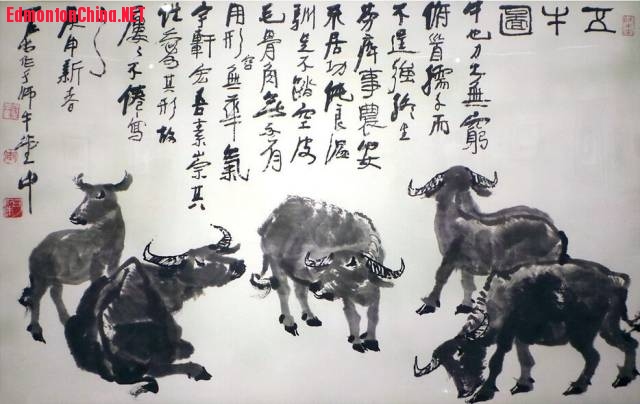 EdmontonChina.NET
五牛圖
牛也力大無窮
俯首孺子而
不逞强終生
勞瘁事農安
不居功純良温
馴足不踏空皮
毛骨角無不有
用形容無華氣
宇軒宏吾素崇其
性愛其形故
屢々不倦寫
之
庚申新春
可染作于師牛堂中